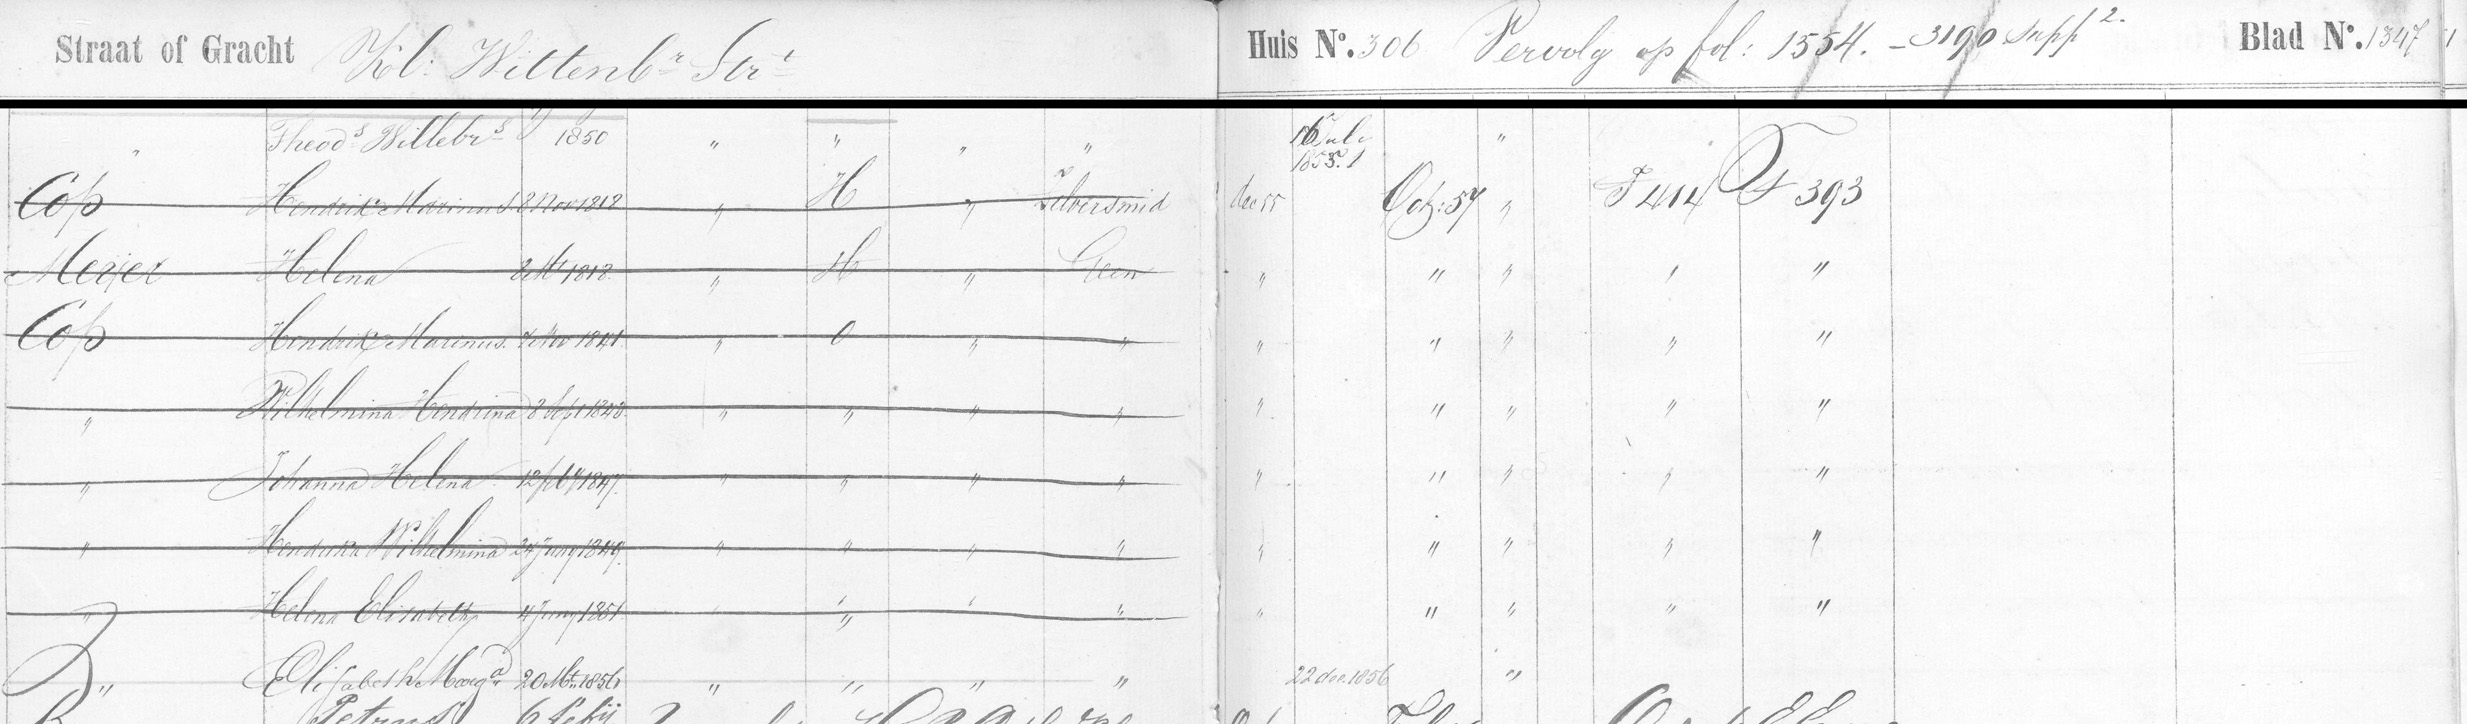 Straat of Gracht Kl: Wittenbr Strt Huis No. 306 Vervolg op fol: 1554. - 3190 Supp 2. Blad No. 1347
" Theods Willebrs 1850 " " " " 16 July 1853. "
Cop Hendrik Marinus 2 Nov 1812 " H " Zilversmid dec 55 Oct: 57 " T 414 T 393
Meijer Helena 2 Mt 1812 " H " Geen " " " " "
Cop Hendrik Marinus 2 Nov 1841 " O " " " " " " "
" Wilhelmina Hendrina 8 Sept 1843 " " " " " " " " "
" Johanna Helena 12 feby 1847. " " " " " " " " "
" Hendrika Wilhelmina 24 Juny 1849. " " " " " " " " "
" Helena Elisabeth 4 Juny 1851. " " " " " " " " "
" Elisabeth Marga 20 Mt 1856 " " " " 22 dec 1856 "
Petrus 6 Febij